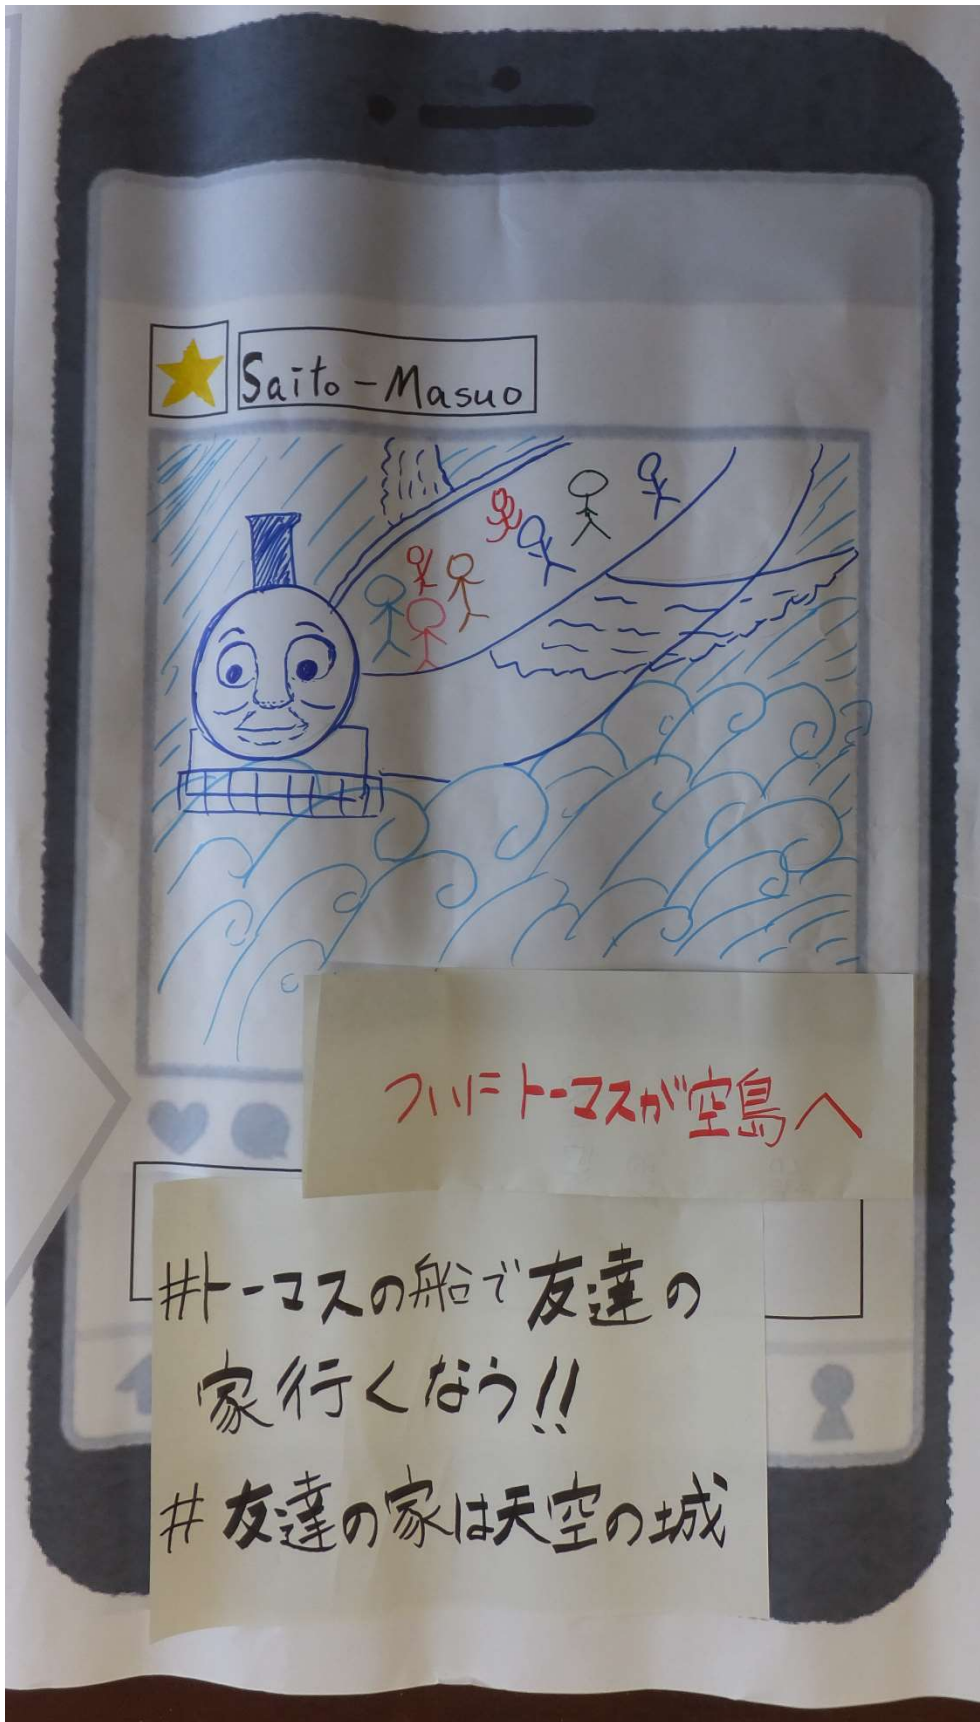 Saito-Masuo
ついにトーマスが空島へ
#トーマスの船で友達の
家行くなう!!
#友達の家は天空の城